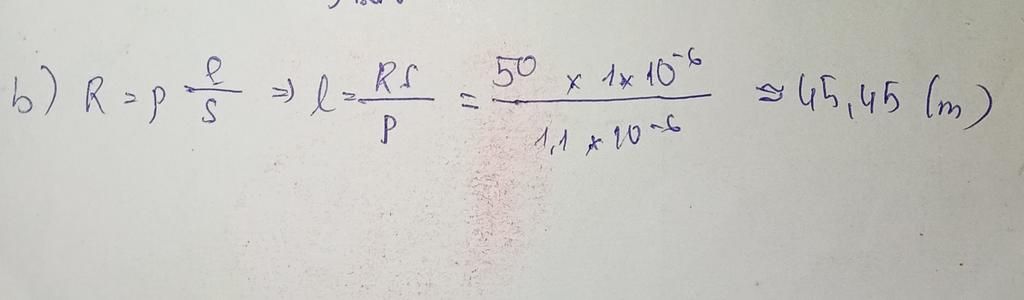 b) R = ρ l/S ⇒ l = RS/ρ = 50 × 1×10⁻⁶ / 1,1 × 10⁻⁶ ≈ 45,45 (m)